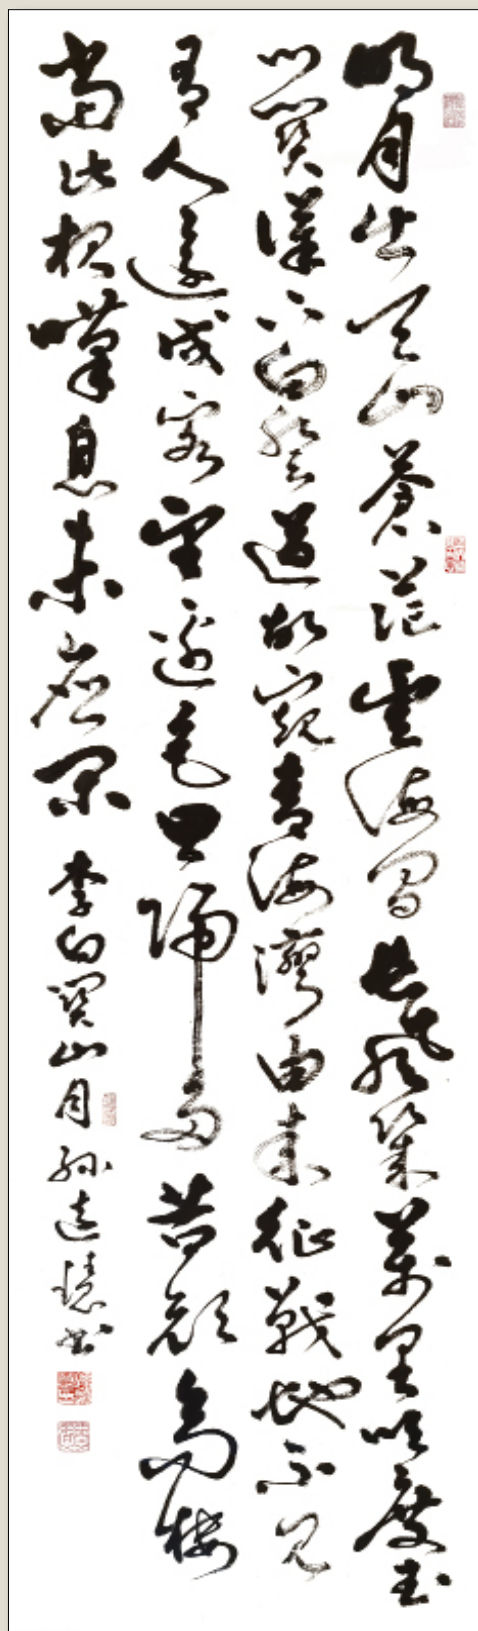 明月出天山蒼茫雲海間長風幾萬里吹度玉
門關漢下白登道胡窺青海灣由來征戰地不見
有人還戍客望邊色思歸多苦顏高樓
當此夜嘆息未應閑 李白關山月 孫書